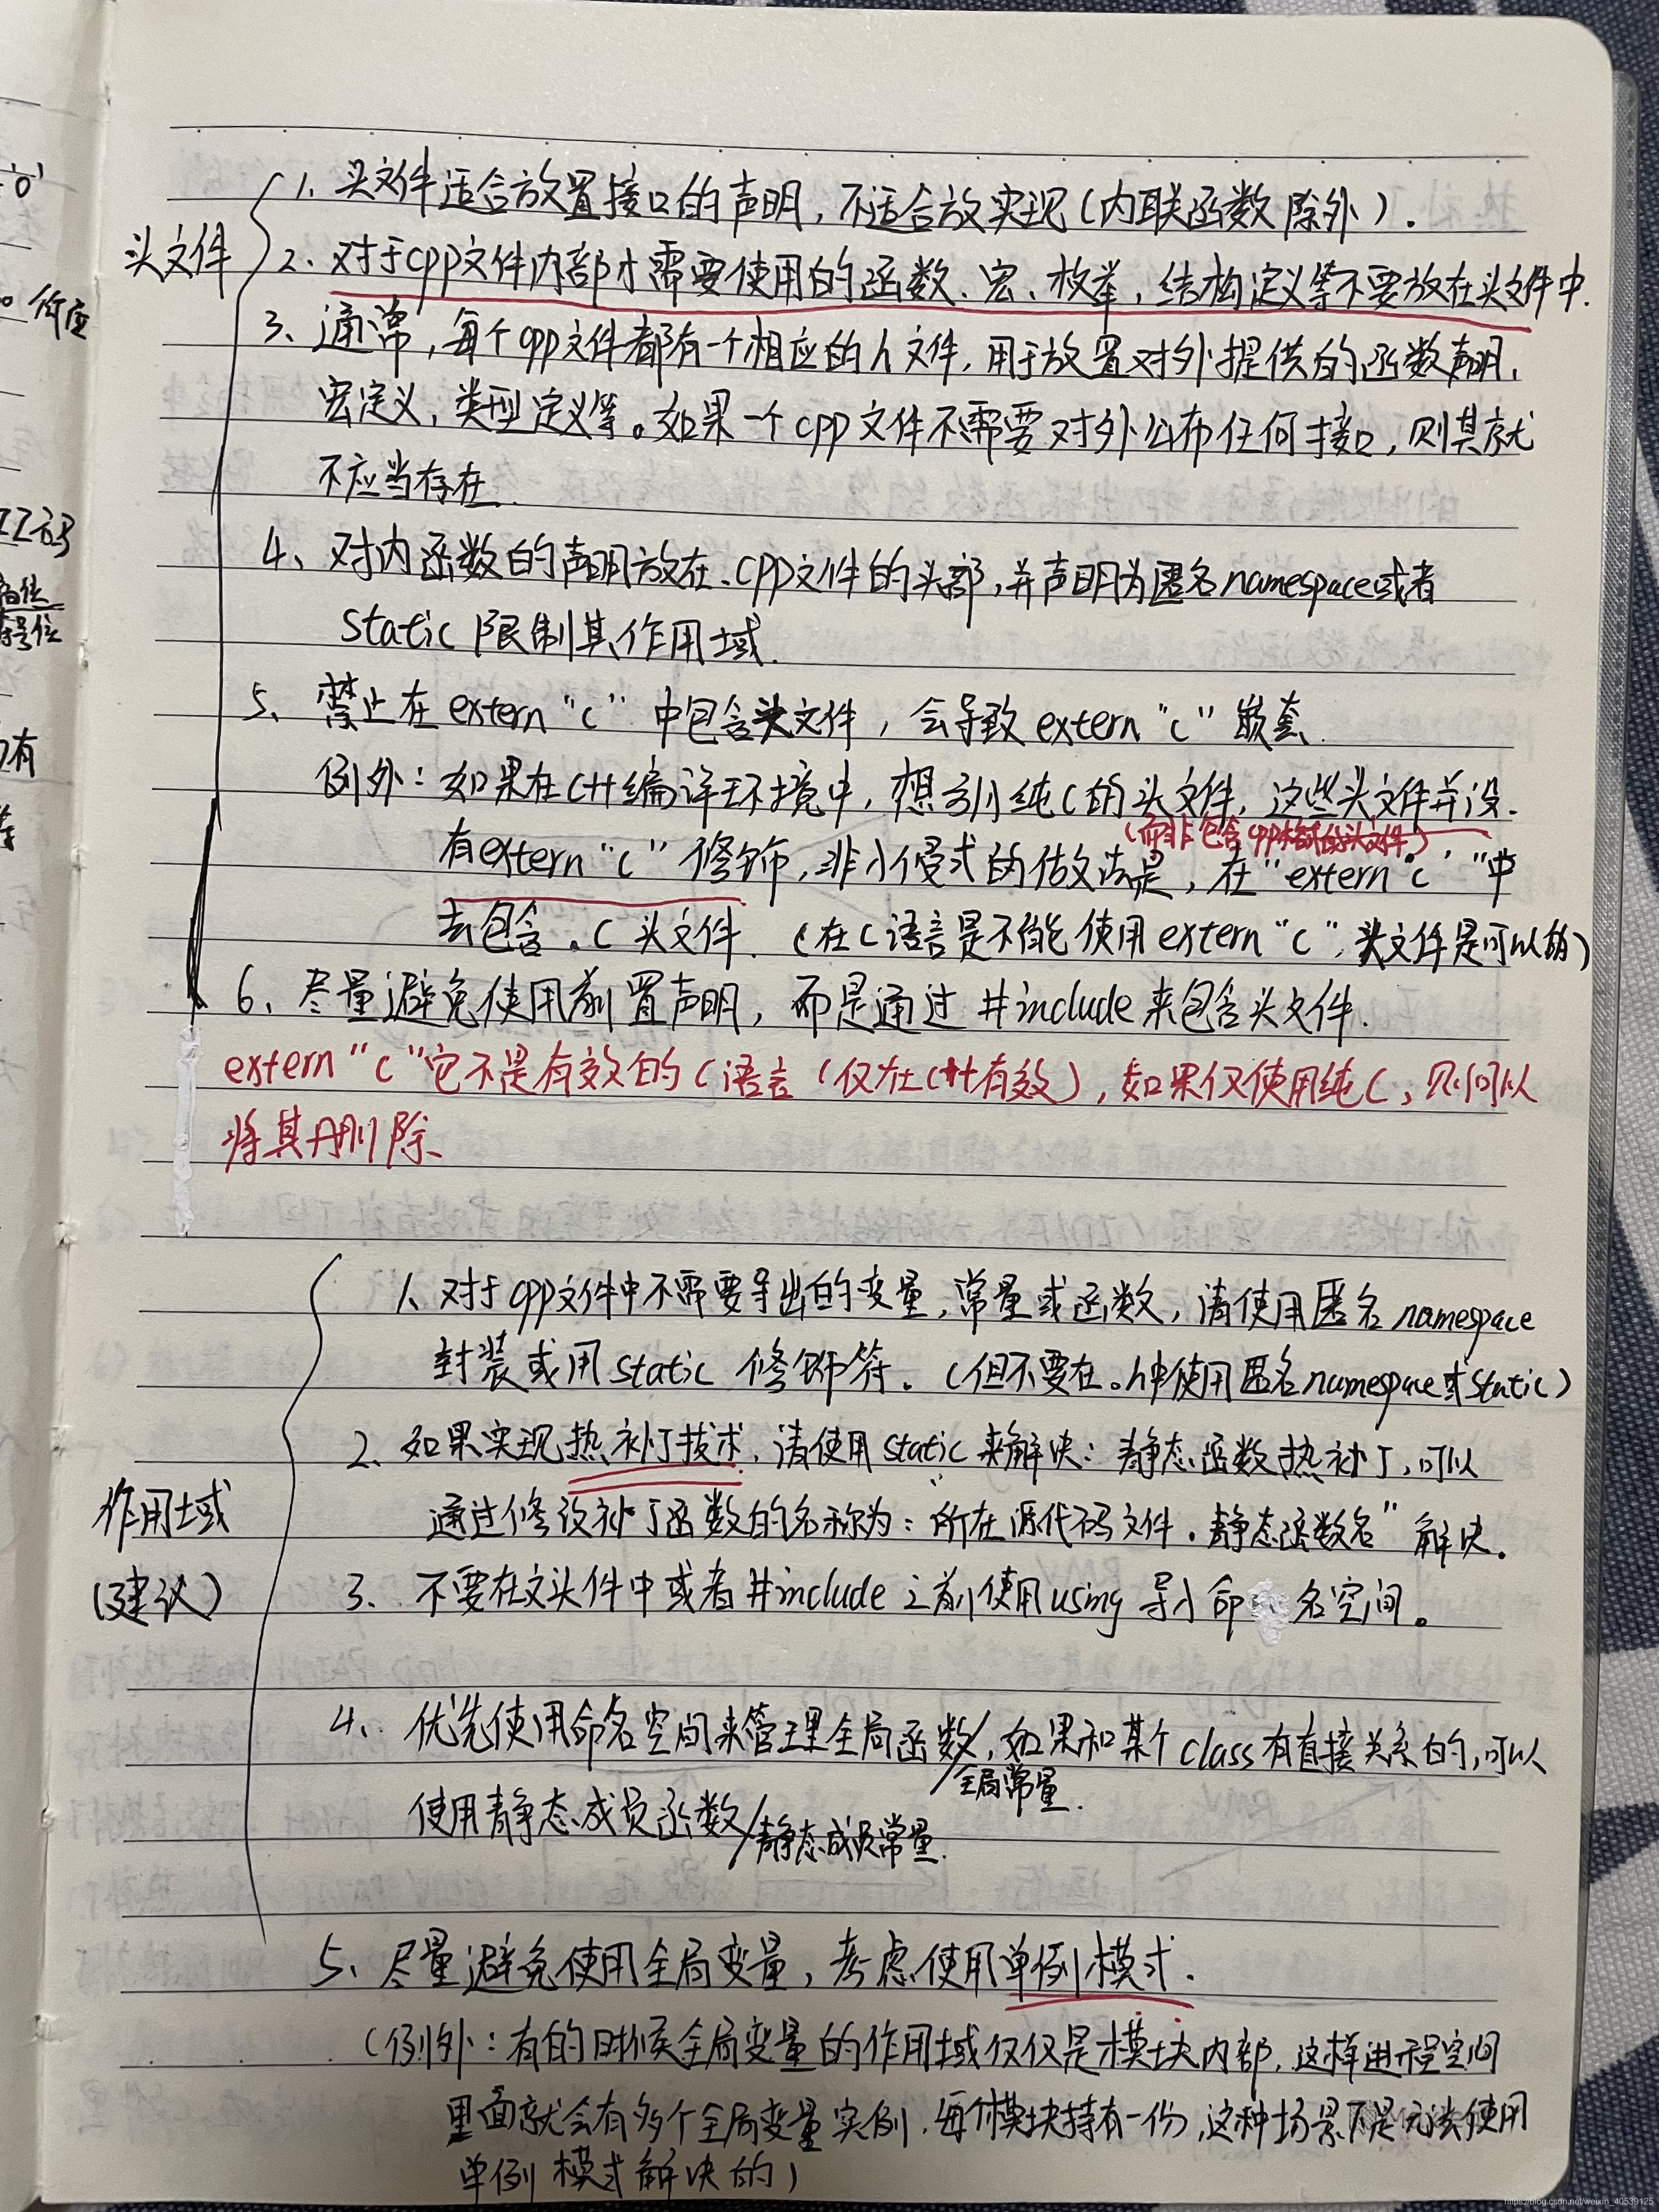 1. 头文件适合放置接口的声明，不适合放实现（内联函数除外）.
头文件
2、对于cpp文件内部才需要使用的函数、宏、枚举，结构定义等不要放在头文件中.
3、通常，每个cpp文件都有一个相应的h文件，用于放置对外提供的函数声明，
宏定义，类型定义等。如果一个cpp文件不需要对外公布任何接口，则其就
不应当存在.
4、对内函数的声明放在.cpp文件的头部，并声明为匿名namespace或者
static限制其作用域.
5、禁止在extern "C" 中包含头文件，会导致extern "C" 嵌套.
例外：如果在C++编译环境中，想引纯C的头文件，这些头文件并没.
（而非包含cpp格式的头文件）
有extern "C" 修饰，非小侵式的做法是，在"extern "C" "中
去包含.C头文件. （在C语言是不能使用extern "C"，头文件是可以的）
6、尽量避免使用前置声明，而是通过#include来包含头文件.
extern "C"它不是有效的C语言（仅在C++有效），如果仅使用纯C，则可以
将其删除、
1、对于cpp文件中不需要导出的变量，常量或函数，请使用匿名namespace
封装或用static 修饰符。（但不要在.h中使用匿名namespace或static）
2、如果实现热补丁技术，请使用static来解决：静态函数热补丁，可以
通过修改补丁函数的名称为："所在源代码文件.静态函数名" 解决。
作用域
（建议）
3、不要在文头件中或者#include之前使用using导入命名空间。
4、优先使用命名空间来管理全局函数/，如果和某个class有直接关系的，可以
全局常量.
使用静态成员函数/静态成员常量.
5、尽量避免使用全局变量，考虑使用单例模式.
（例外：有的时候全局变量的作用域仅仅是模块内部，这样进程空间
里面就会有多个全局变量实例，每个模块持有一份，这种场景下是无法使用
单例模式解决的）
0'
所应
高位
符号位
有
https://blog.csdn.net/weixin_40539125